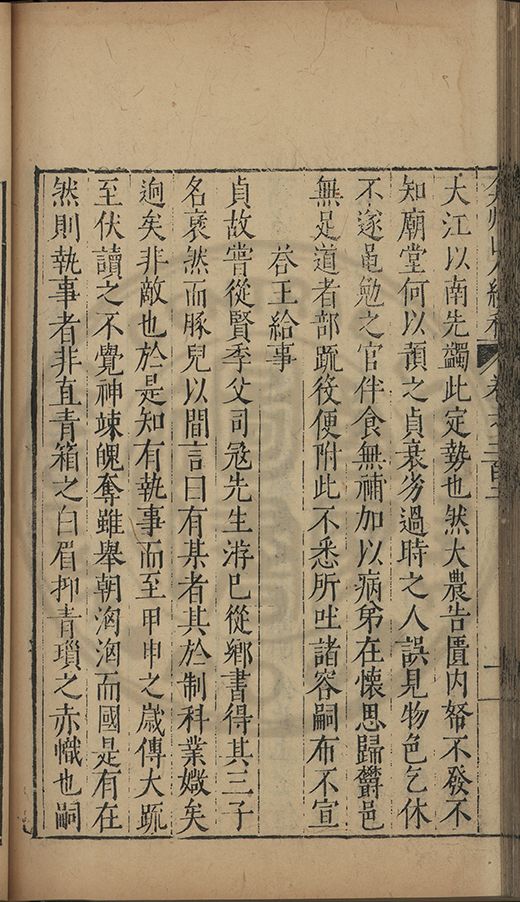 弇州山人續稿 卷之二百三
大江以南先蠲此定勢也然大農告匱內帑不發不
知廟堂何以頟之貞衰劣過時之人誤見物色乞休
不遂黽勉之官伴食無補加以病弟在懷思歸欝邑
無足道者部䟽筊便附此不悉所吐諸容嗣布不宣
荅王給事
貞故嘗從賢季父司冦先生游已從鄉書得其三子
名裒然而豚兒以間言曰有某者其於制科業媺矣
逈矣非敵也於是知有執事而至甲申之嵗傳大䟽
至伏讀之不覺神竦魄奪雖舉朝洶洶而國是有在
然則執事者非直青箱之白眉抑青瑣之赤幟也嗣